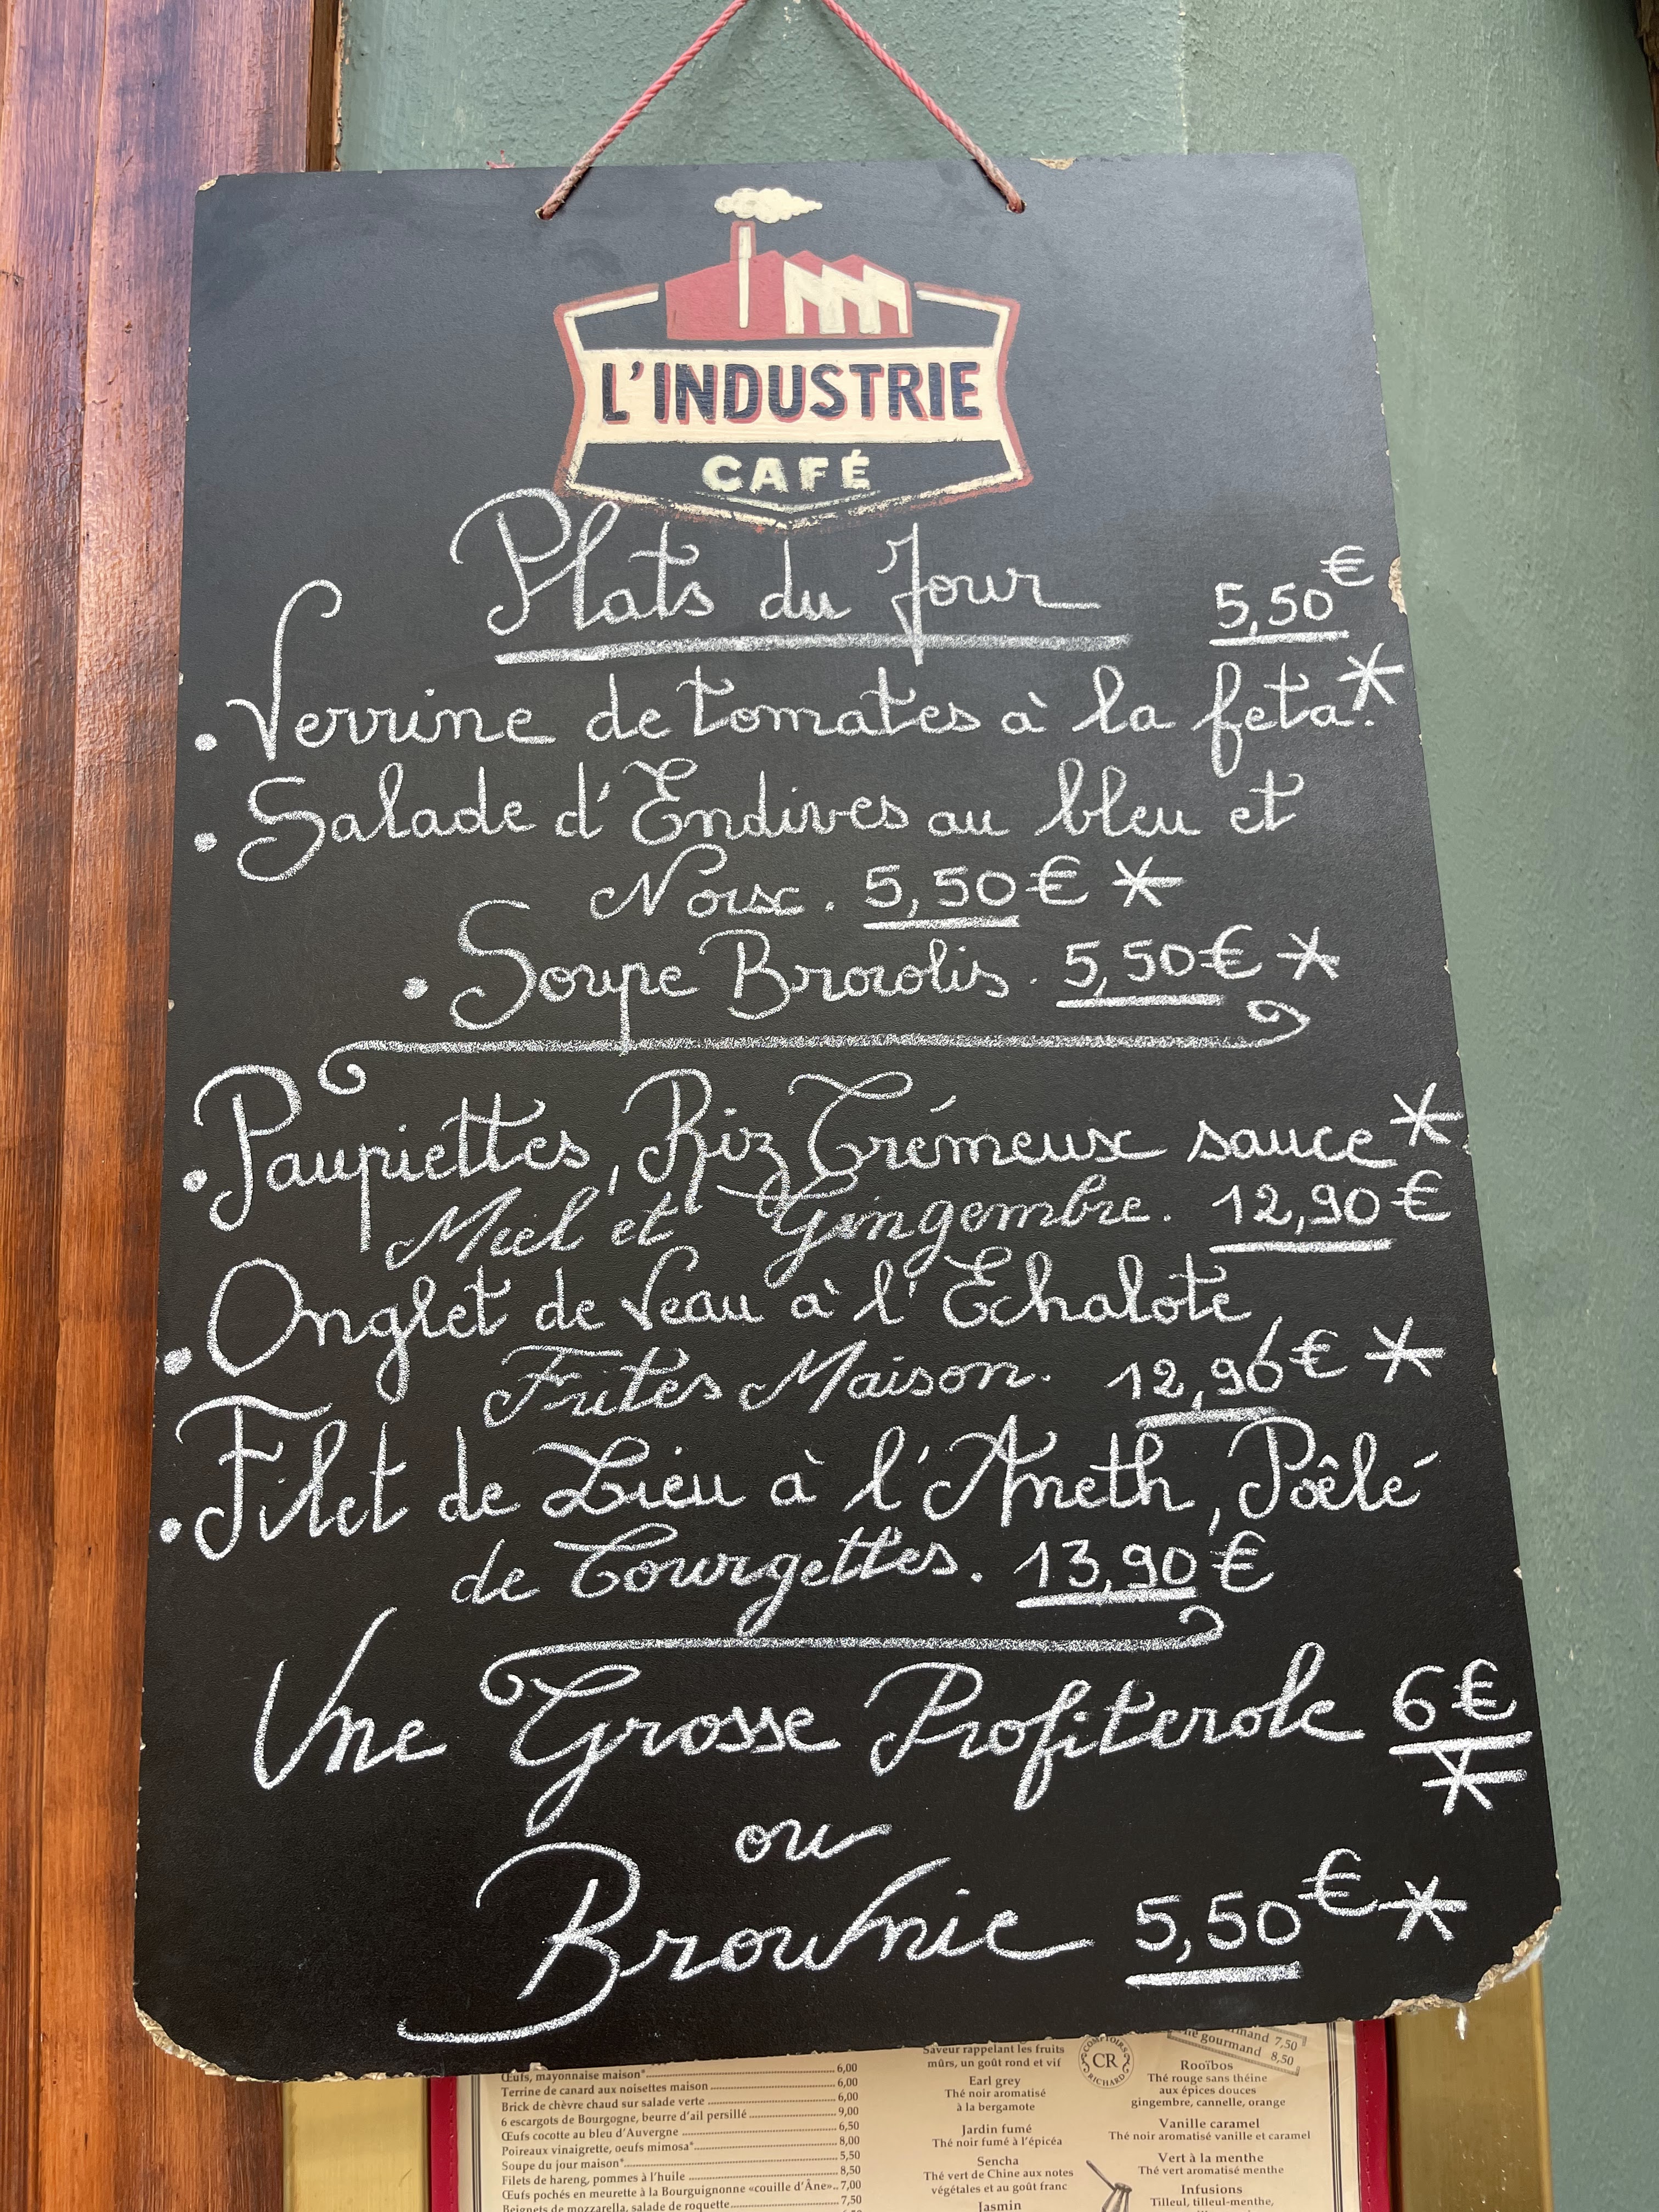 L'INDUSTRIE
CAFÉ
Plats du Jour 5,50€
• Verrine de tomates à la feta. *
• Salade d'Endives au bleu et
Noix. 5,50€ *
• Soupe Brocolis. 5,50€ *
• Paupiettes, Riz Crémeux sauce *
Miel et Gingembre. 12,90€
• Onglet de Veau à l'Echalote,
Frites Maison. 12,96€ *
• Filet de Lieu à l'Aneth, Poêlé
de Courgettes. 13,90€
Une Grosse Profiterole 6€
*
ou
Brownie 5,50€ *
Œufs, mayonnaise maison* 6,00
Terrine de canard aux noisettes maison 6,00
Brick de chèvre chaud sur salade verte 6,00
6 escargots de Bourgogne, beurre d'ail persillé 9,00
Œufs cocotte au bleu d'Auvergne 6,50
Poireaux vinaigrette, oeufs mimosa* 8,00
Soupe du jour maison* 5,50
Filets de hareng, pommes à l'huile 8,50
Œufs pochés en meurette à la Bourguignonne «couille d'Âne» 7,00
Beignets de mozzarella, salade de roquette 7,50
Saveur rappelant les fruits
mûrs, un goût rond et vif
Earl grey
Thé noir aromatisé
à la bergamote
Jardin fumé
Thé noir fumé à l'épicéa
Sencha
Thé vert de Chine aux notes
végétales et au goût franc
Jasmin
COMPTOIRS
CR
RICHARD
7,50
gourmand 8,50
Rooïbos
Thé rouge sans théine
aux épices douces
gingembre, cannelle, orange
Vanille caramel
Thé noir aromatisé vanille et caramel
Vert à la menthe
Thé vert aromatisé menthe
Infusions
Tilleul, tilleul-menthe,